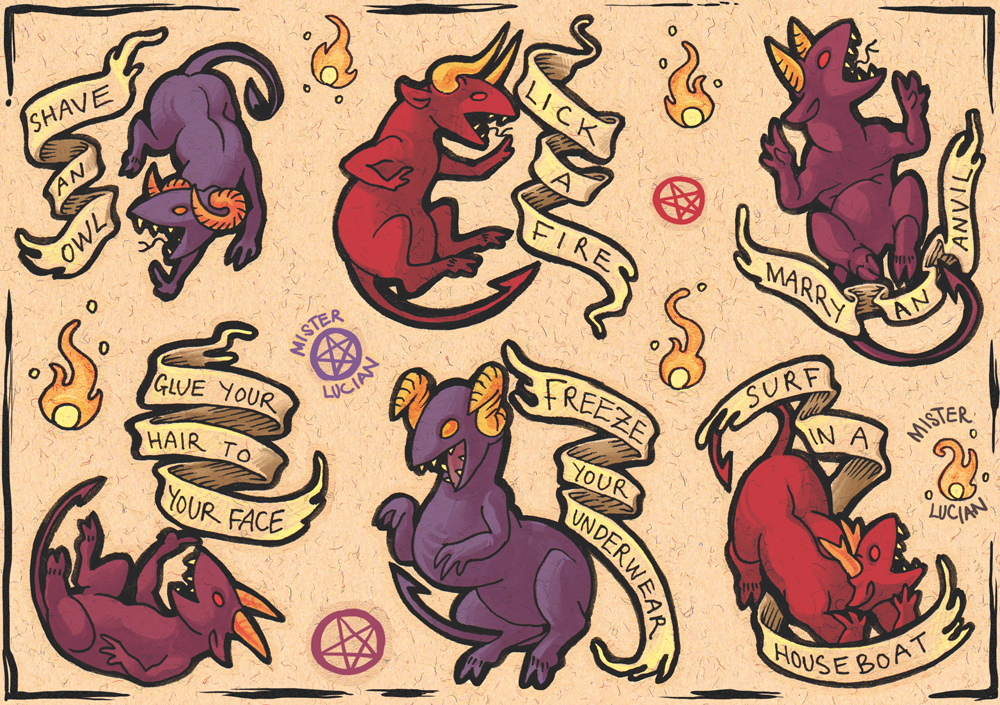 SHAVE
AN
OWL
LICK
A
FIRE
MARRY AN ANVIL
MISTER
LUCIAN
GLUE YOUR
HAIR TO
YOUR FACE
FREEZE
YOUR
UNDERWEAR
SURF
IN A
HOUSEBOAT
MISTER
LUCIAN